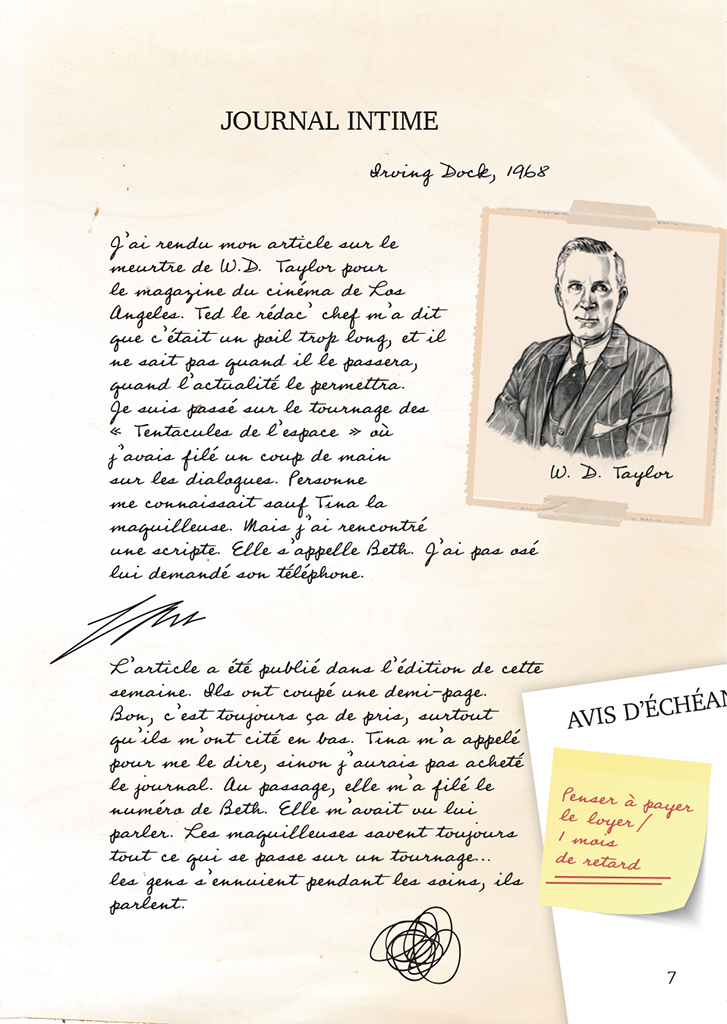 JOURNAL INTIME
Irving Dock, 1968
J'ai rendu mon article sur le
meurtre de W.D. Taylor pour
le magazine du cinéma de Los
Angeles. Ted le rédac' chef m'a dit
que c'était un poil trop long, et il
ne sait pas quand il le passera,
quand l'actualité le permettra.
Je suis passé sur le tournage des
« Tentacules de l'espace » où
j'avais filé un coup de main
sur les dialogues. Personne
me connaissait sauf Tina la
maquilleuse. Mais j'ai rencontré
une scripte. Elle s'appelle Beth. J'ai pas osé
lui demandé son téléphone.
W. D. Taylor
L'article a été publié dans l'édition de cette
semaine. Ils ont coupé une demi-page.
Bon, c'est toujours ça de pris, surtout
qu'ils m'ont cité en bas. Tina m'a appelé
pour me le dire, sinon j'aurais pas acheté
le journal. Au passage, elle m'a filé le
numéro de Beth. Elle m'avait vu lui
parler. Les maquilleuses savent toujours
tout ce qui se passe sur un tournage...
les gens s'ennuient pendant les soins, ils
parlent.
AVIS D'ÉCHÉAN
Penser à payer
le loyer /
1 mois
de retard
7